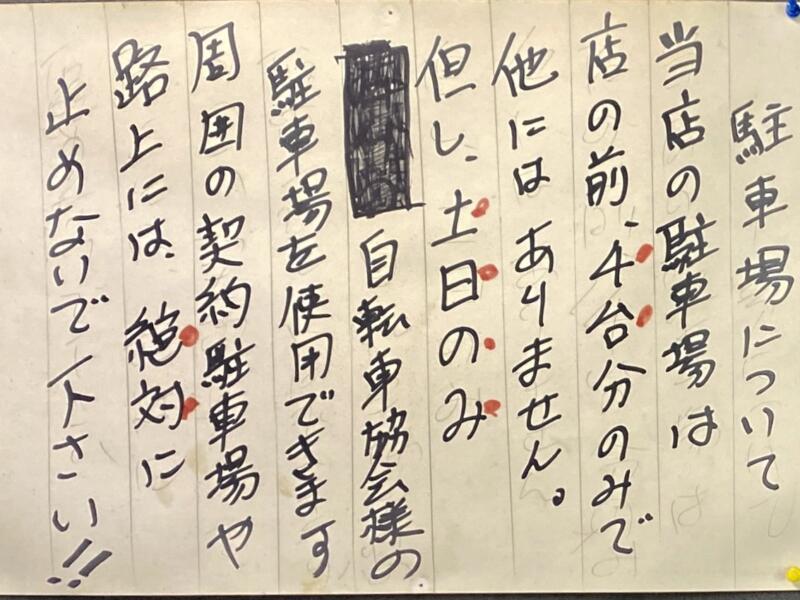 駐車場について
当店の駐車場は
店の前、4台分のみで
他にはありません。
但し、土日のみ
自転車協会様の
駐車場を使用できます
周囲の契約駐車場や
路上には、絶対に
止めないで下さい!!